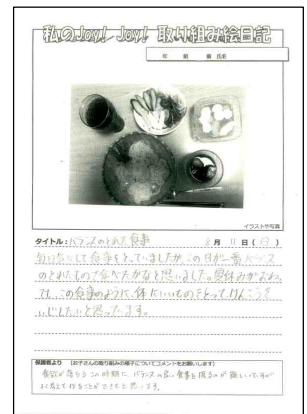 私のJoy! Joy! 取り組み絵日記
年 組 番 氏名
イラストや写真
タイトル:バランスのとれた食事 8月11日(日)
毎日気にして食事をとっていましたが、この日が一番バランス
のとれたもので食べたかなと思いました。夏休みがおわっ
ても、この食事のように、体にいいものをとってけんこうを
いじしたいと思っています。
保護者より (お子さんの取り組みの様子についてコメントをお願いします)
食欲が落ちるこの時期に、バランスの良い食事を摂るのが難しいですが
よく考えて作ることができたと思います。